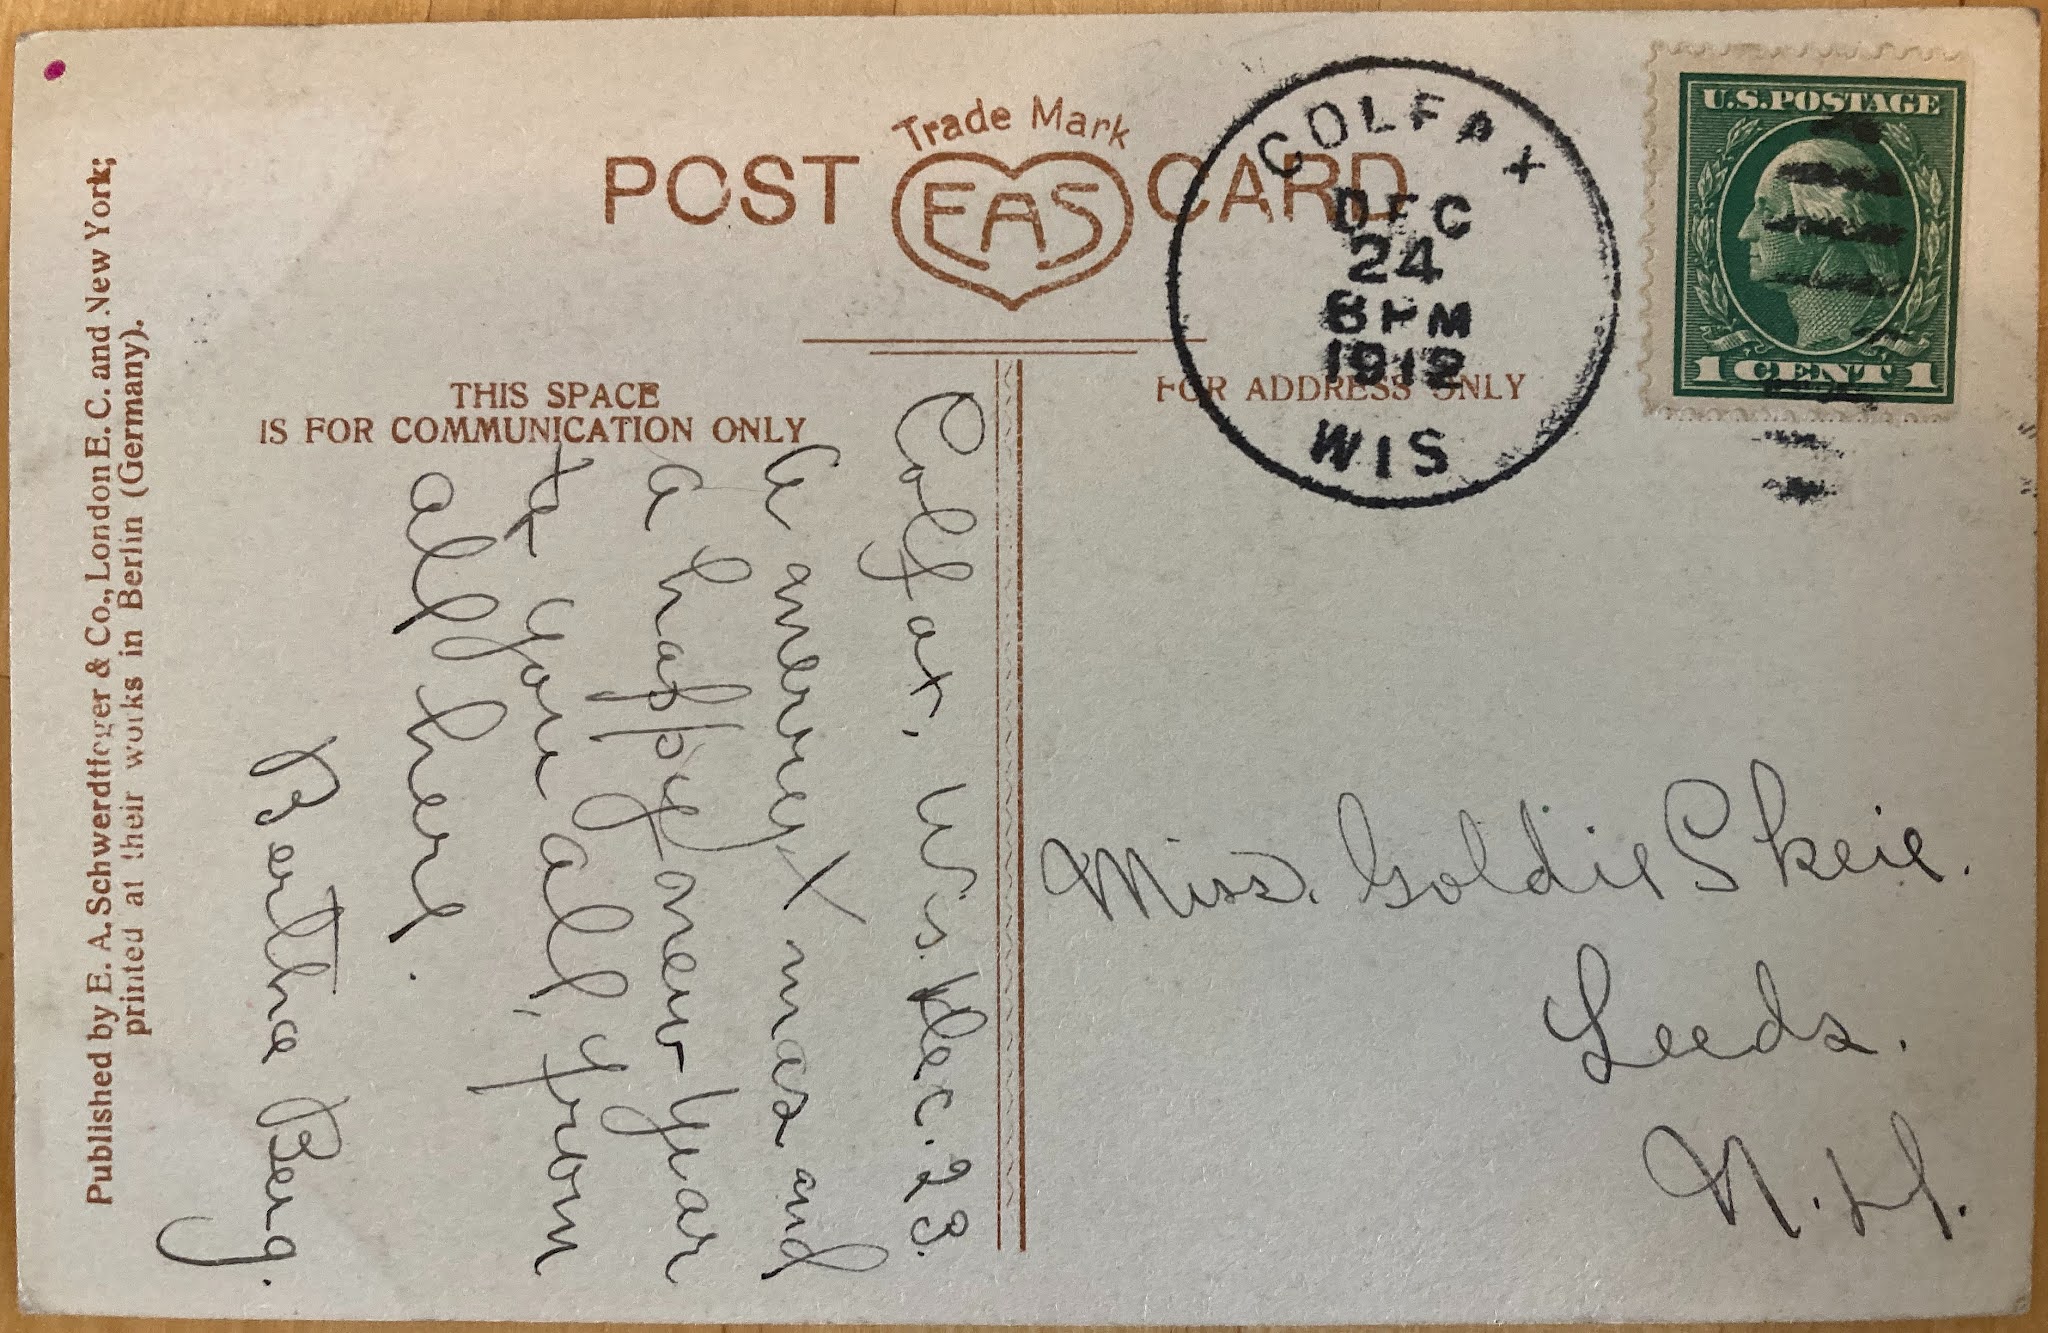 Trade Mark
POST EAS CARD
COLFAX
DEC
24
8 PM
1912
WIS
U.S. POSTAGE
1 CENT 1
THIS SPACE
IS FOR COMMUNICATION ONLY
FOR ADDRESS ONLY
Published by E. A. Schwerdtfeger & Co., London E. C. and New York;
printed at their works in Berlin (Germany).
Colfax, Wis. Dec. 23.
A merrey X mas and
a happey new year
to you all, from
all here.
Bertha Berg.
Miss. Goldie Skeie.
Leeds.
N.